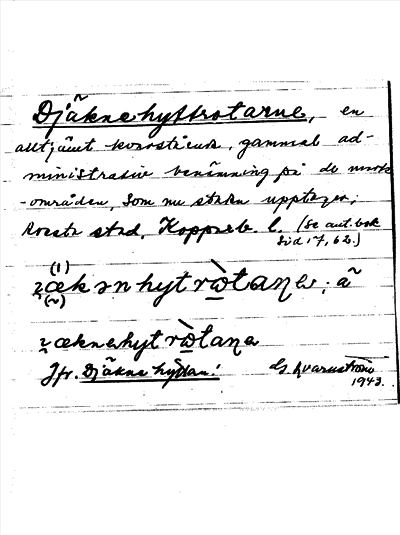 Djäknehyttrotarne, en
alltjämt kvarstående, gammal ad-
ministrativ benämning på de mark
-områden, som nu staden upptager;
Avesta stad, Kopparb. l. (Se ant.bok
Sid 17, 62.)
(1)
ʒækənhytrɷ̀taɳe; å̃
(~)
ʒæknehytrɷ̀taɳa
Jfr. Djäknehyttan!
G. Kvarnström
1943.